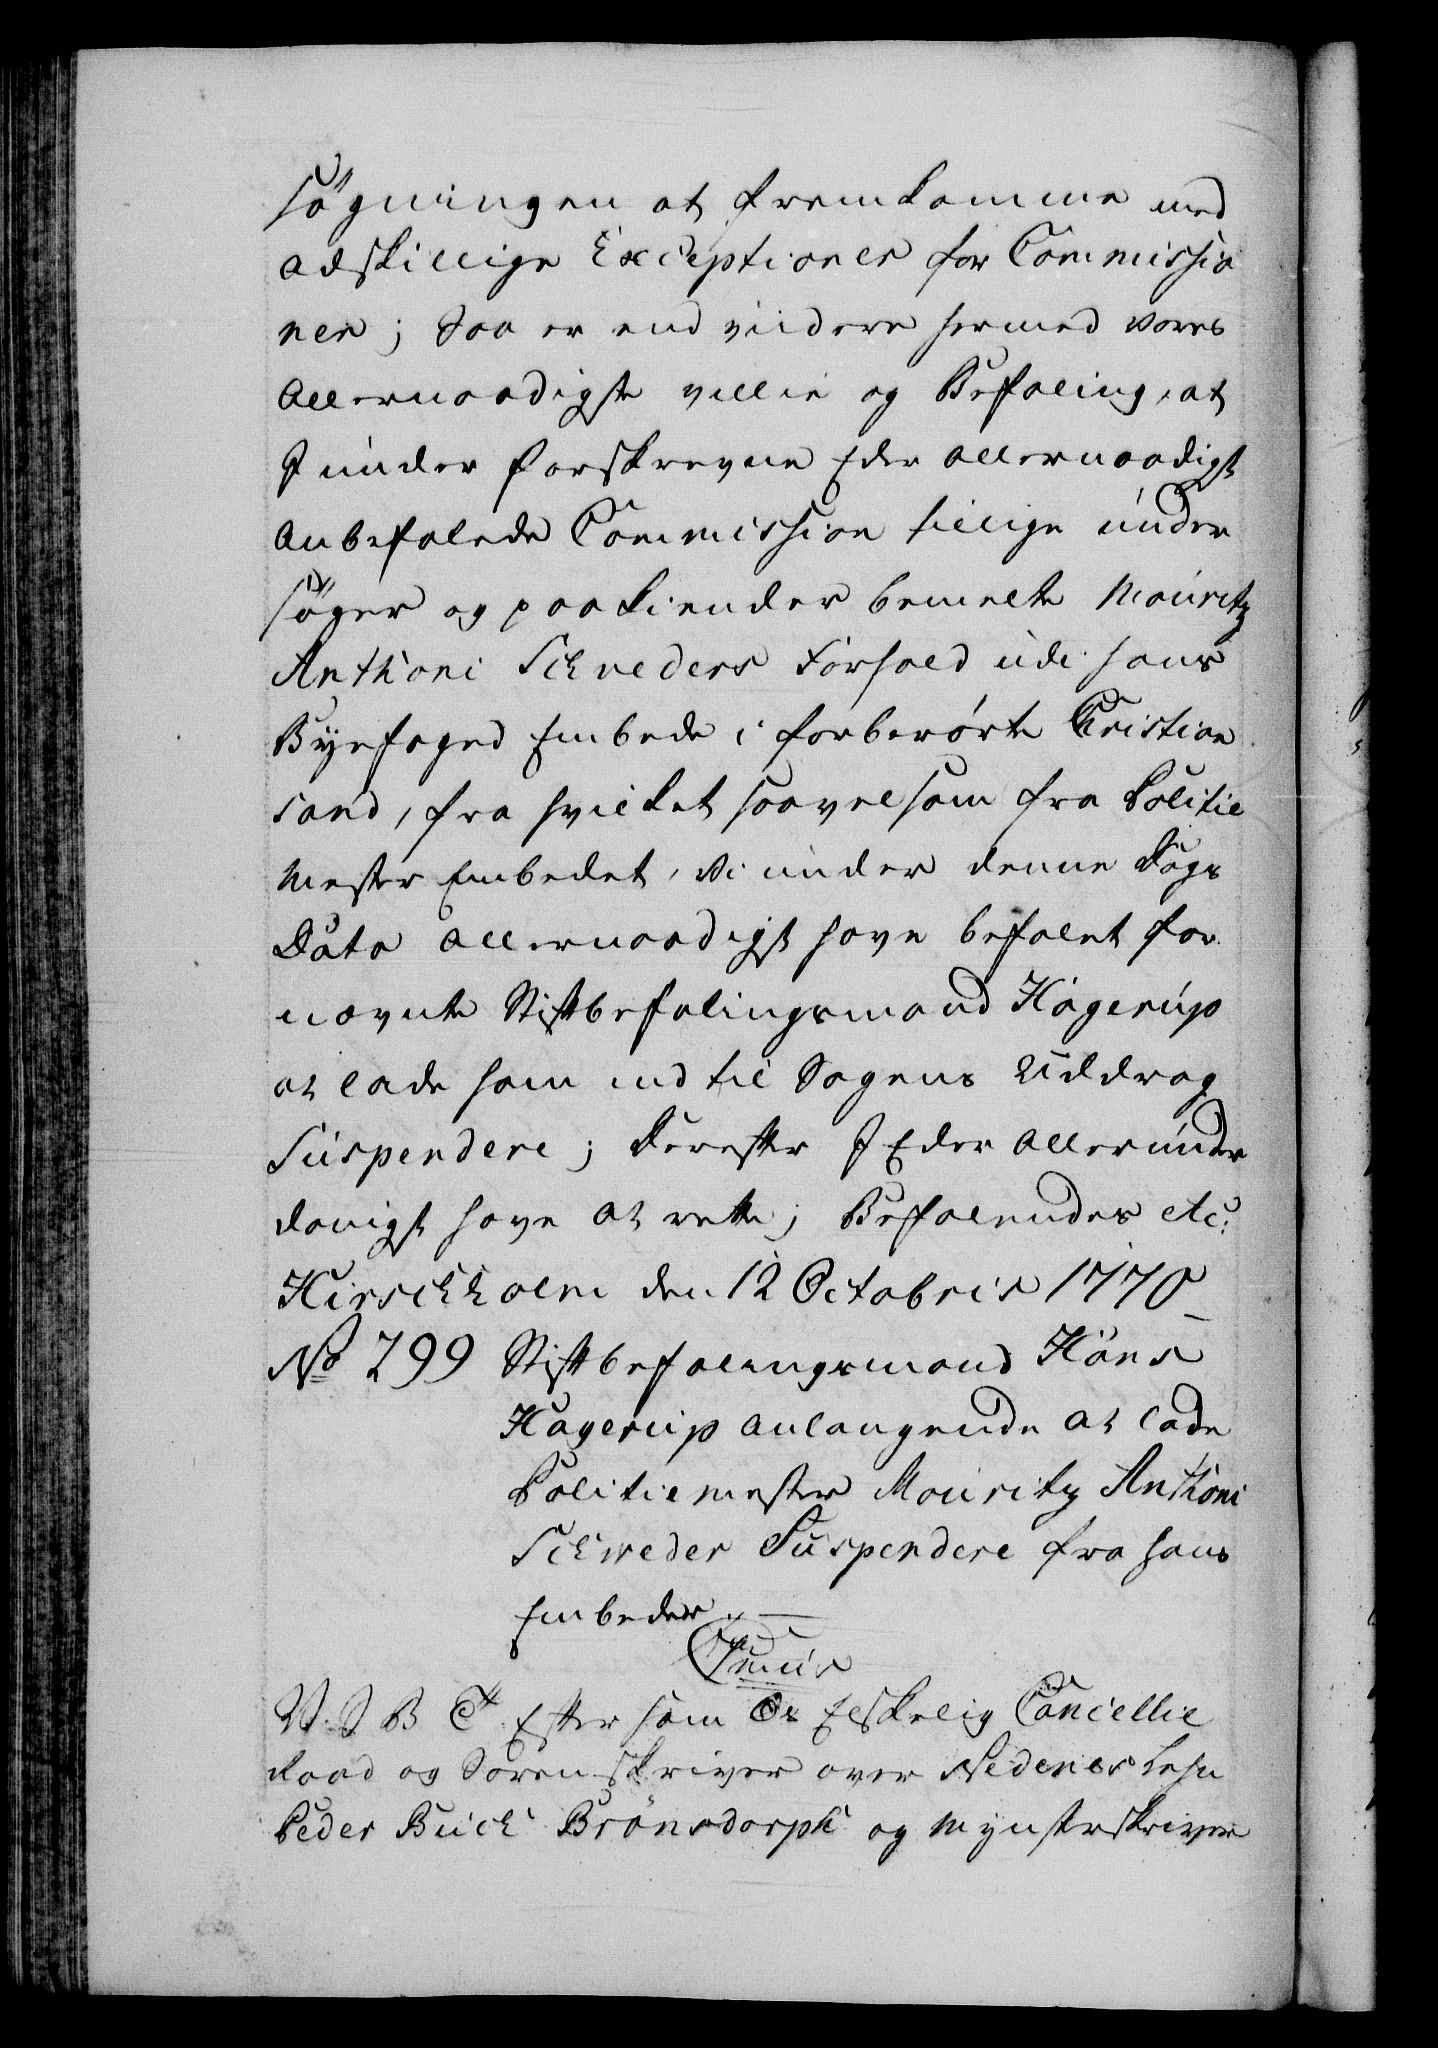 søgningen at fremkomme med
adskillige Exceptioner for Commissio
nen; Saa er end viidere hermed Vores
Allernaadigste villie og Befaling, at
I under forskrevne Eder Allernaadigst
Anbefalede Commission tillige under
søger og paakiender bemelte Mouritz
Anthoni Schveders Forhold udi hans
Byefoged Embede i forberørte Christian
sand, fra hvilket saavelsom fra Politie
Mester Embedet, Vi under denne Dags
Dato Allernaadigst have befalet for
nævnte Stiftbefalingsmand Hagerup
at lade ham ind til Sagens Uddrag
Suspendere; Derefter I Eder Allerunder
danigst have at rette; Befalendes etc:
Hirschholm den 12 Octobris 1770
No 299 Stiftbefalingsmand Hans
Hagerup anlangende at lade
Politiemester Mouritz Anthoni
Schweder Suspendere fra hans
Embeder
V. G B T Efter som Os Elskelig Cancellie
Raad og Sorenskriver over Nedenes Lehn
Peder Buch Brönsdorph og Myntskriver